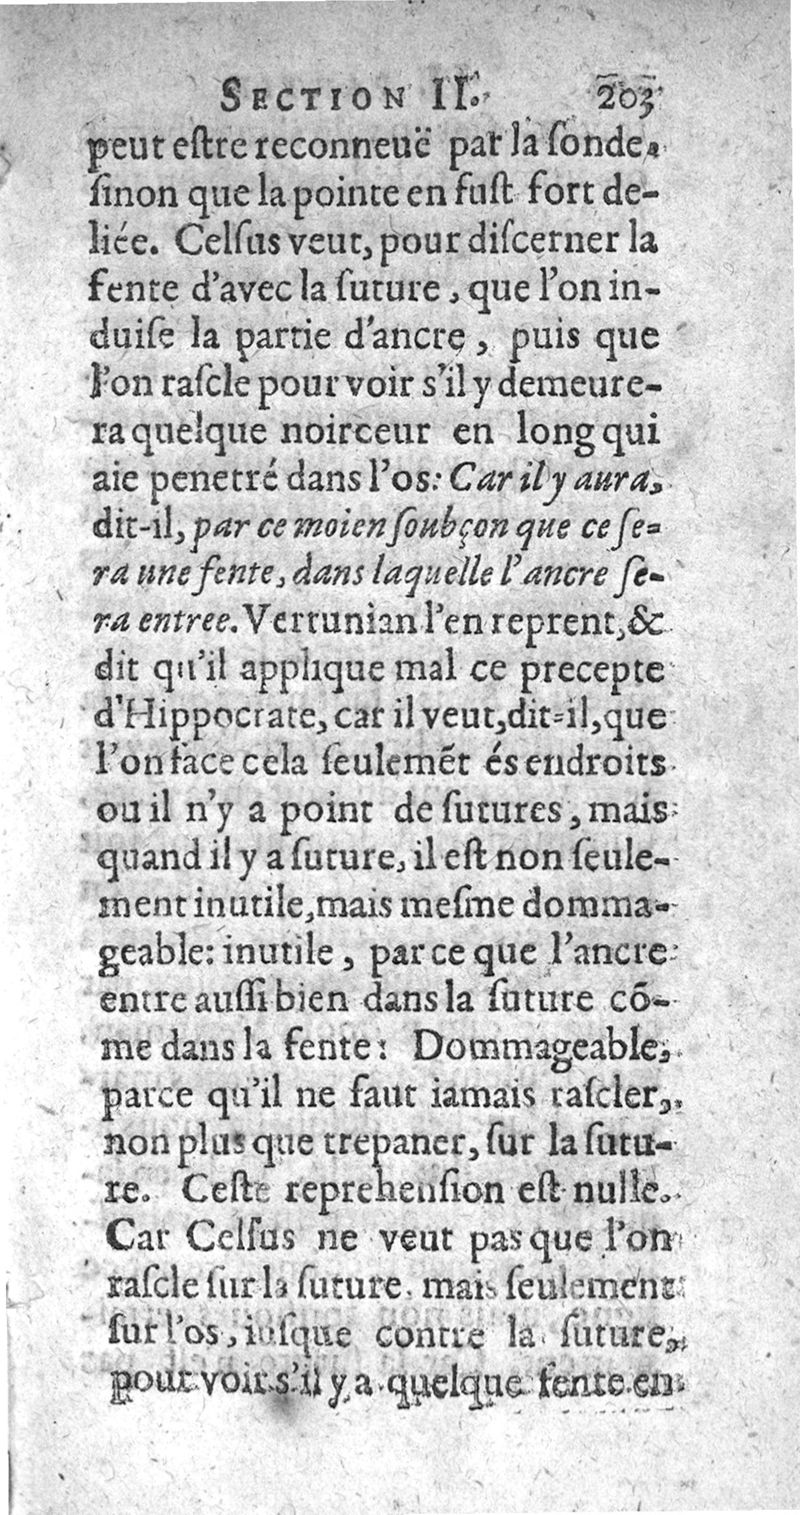 SECTION II. 203
peut eſtre reconneuë par la ſonde,
ſinon que la pointe en fuſt fort de-
liée. Celſus veut, pour diſcerner la
fente d'avec la ſuture, que l'on in-
duiſe la partie d'ancre, puis que
l'on raſcle pour voir s'il y demeure-
ra quelque noirceur en long qui
aie penetré dans l'os: Car il y aura,
dit-il, par ce moien ſoubçon que ce ſe-
ra une fente, dans laquelle l'ancre ſe-
ra entree. Vertunian l'en reprent, &
dit qu'il applique mal ce precepte
d'Hippocrate, car il veut, dit-il, que
l'on face cela ſeulemẽt és endroits
ou il n'y a point de ſutures, mais
quand il y a ſuture, il eſt non ſeule-
ment inutile, mais meſme domma-
geable: inutile, par ce que l'ancre
entre auſſi bien dans la ſuture cõ-
me dans la fente: Dommageable,
parce qu'il ne faut iamais raſcler,
non plus que trepaner, ſur la ſutu-
re. Ceſte reprehenſion eſt nulle.
Car Celſus ne veut pas que l'on
raſcle ſur la ſuture. mais ſeulement
ſur l'os, iuſque contre la ſuture,
pour voir s'il y a quelque fente en